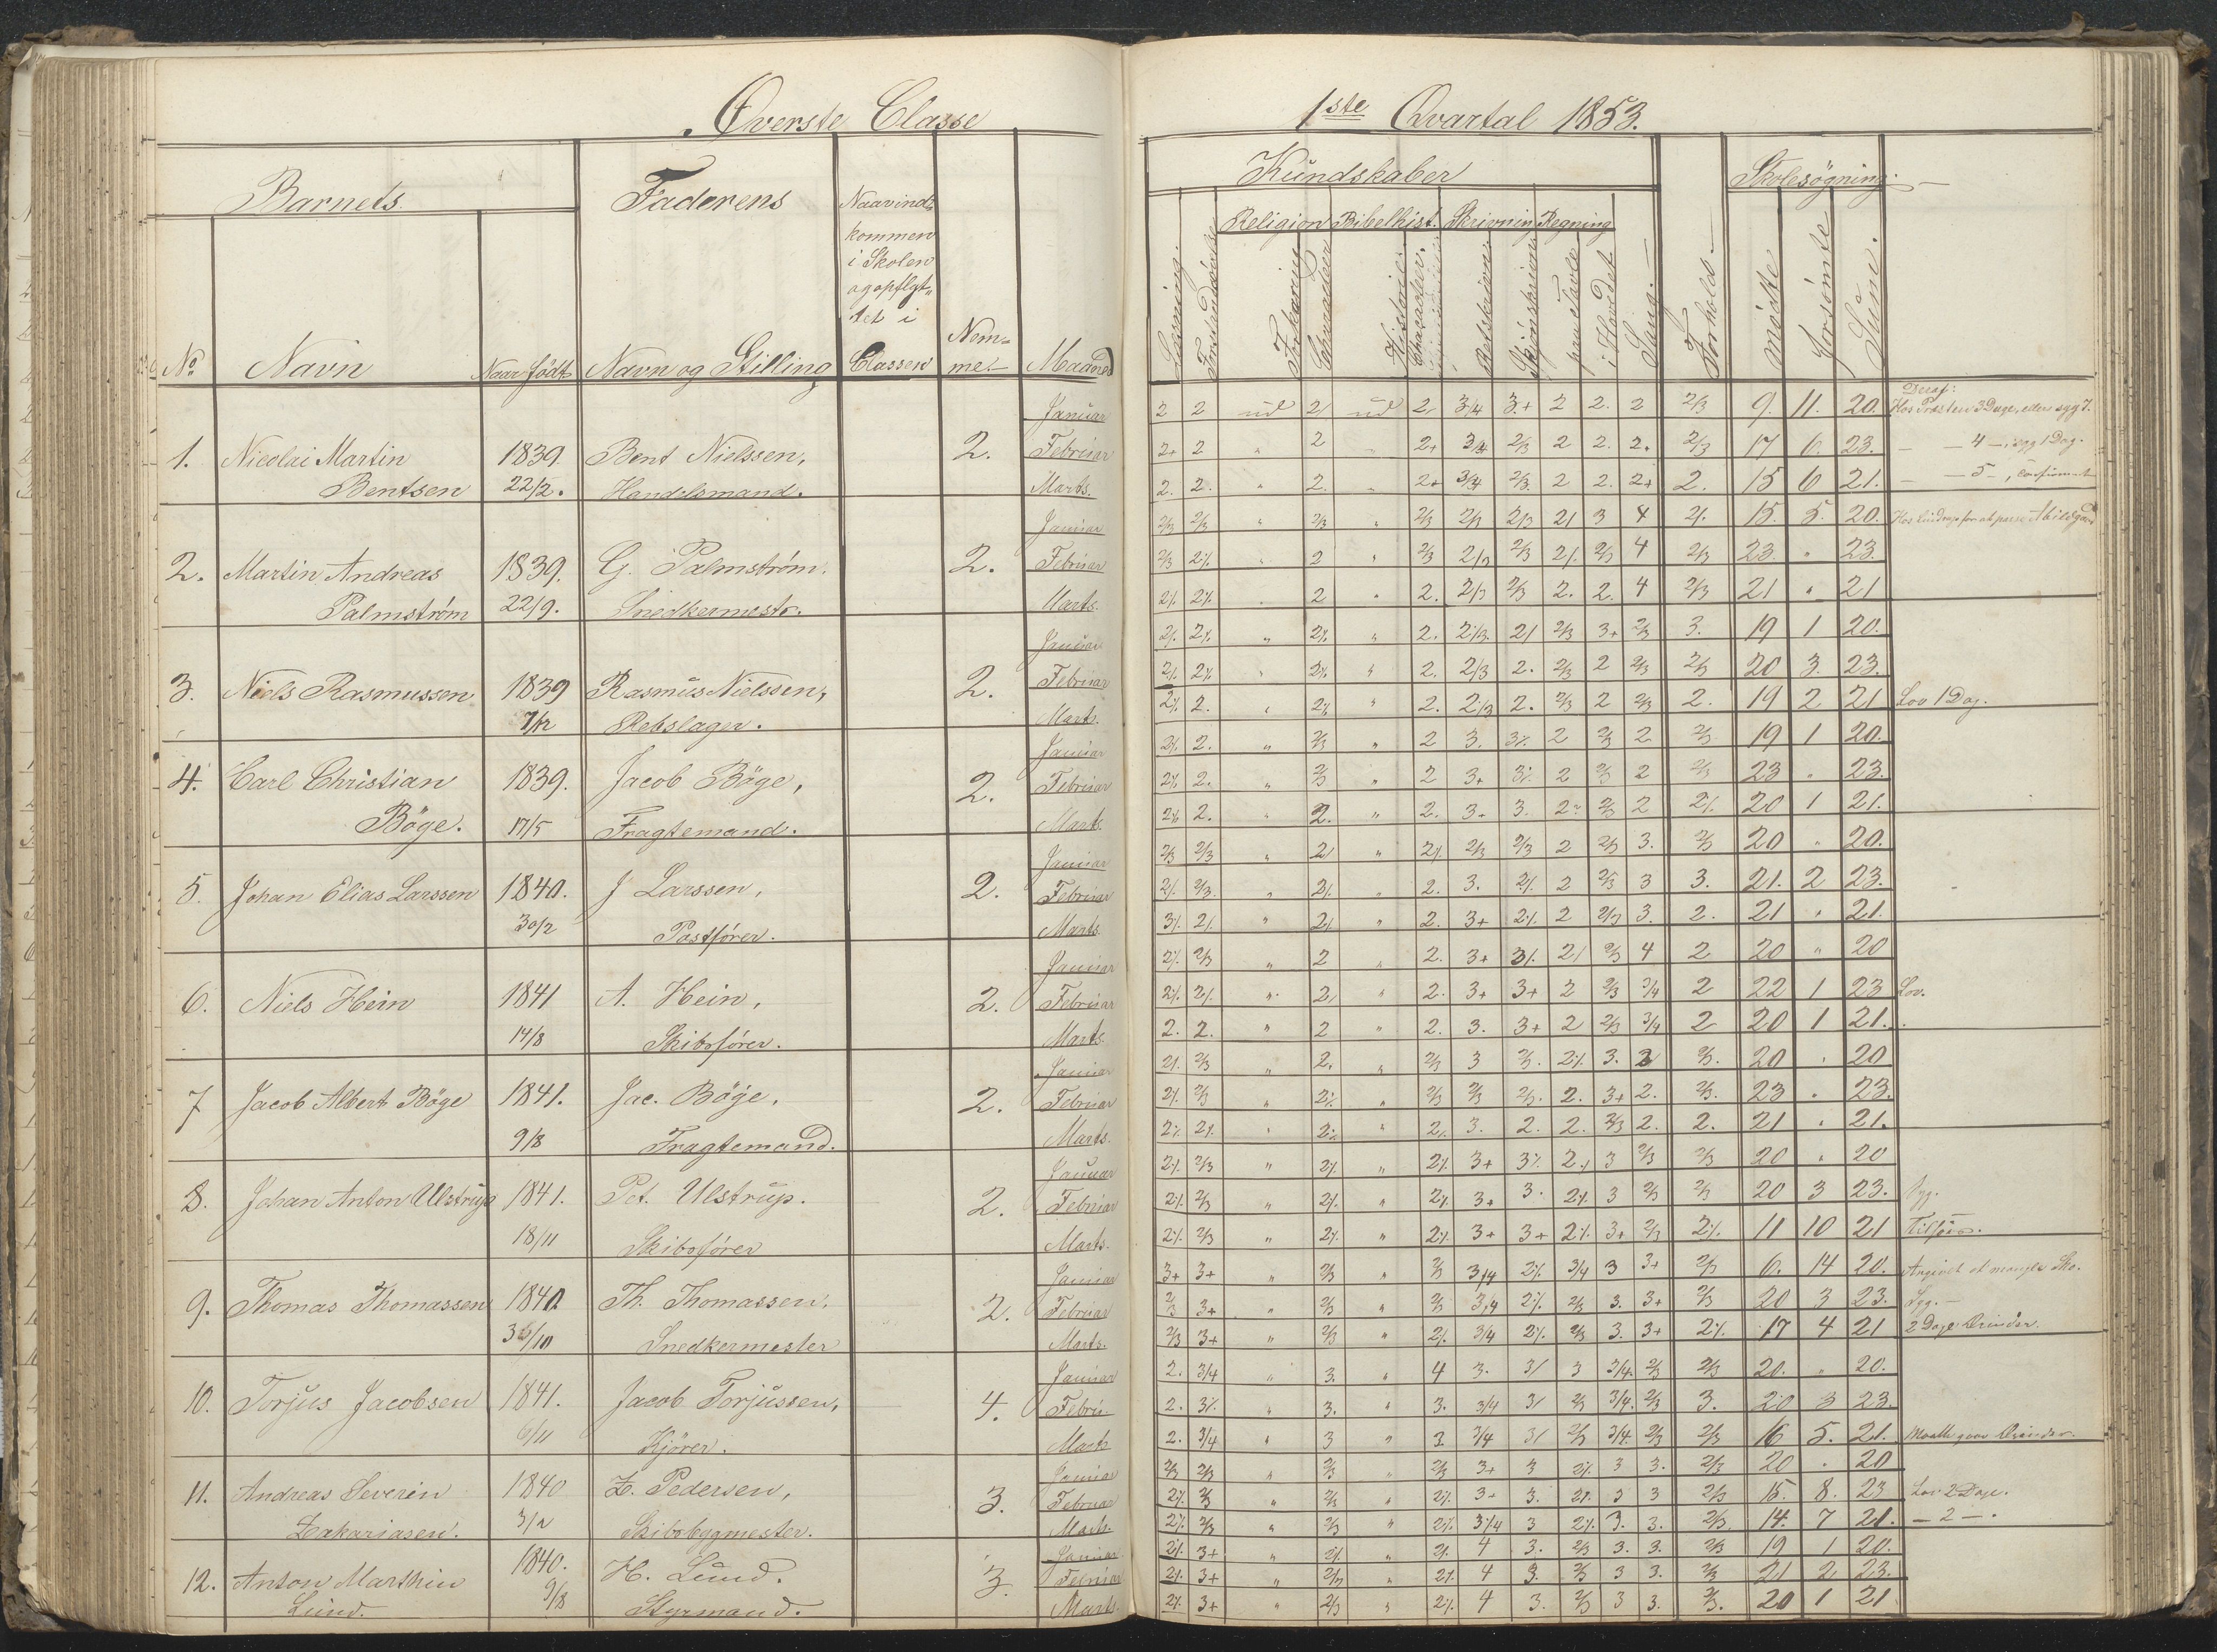 Øverste Classe
1ste Qvartal 1853.
Barnets
Faderens
Naar ind=
kommen
i Skolen
og opflyt„
tet i
Classen
Nem=
me.
Maaned
No
Navn
Naar født
Navn og Stilling
Kundskaber
Religion Bibelhist. Skrivning Regning
Skolesøgning.
Læsning.
Forklaring
Character
Historie
Character.
Retskrivn.
Skjønskrivn.
paa Tavle
i Hovedet
Sang.
Forhold.
mødte
forsømte
Sum.
1. Nicolai Martin 1839. Bent Nielssen, 2.
Bentsen 22/2. Handelsmand.
Januar 2 2 ud 2 ud 2 3/4 3+ 2 2. 2 2/3 9. 11. 20. Hos Præsten 3 Dage, ellers syg
Februar 2+ 2 " 2 " 2+ 3/4 2/3 2 2. 2. 2/3 17 6. 23. — 4 —, syg 1 Dag.
Marts. 2. 2. " 2. " 2+ 3/4 2/3. 2 2. 2+ 2. 15 6 21. — 5 —,
2. Martin Andreas 1839. G. Palmstrøm. 2.
Palmstrøm 22/9. Snedkermestr.
Januar 2/3 2/3 " 2/3 " 2/3 2/3 2/3 2/ 3 4 2/. 15. 5. 20. Hos
Februar 2/3 2/. " 2 " 2/3 2/3 2/3 2/. 2/3 4 2/3 23. " 23.
Marts. 2/. 2/. " 2 " 2. 2/3 2/3 2. 2. 4 2/3 21 " 21
3. Niels Rasmussen 1839 Rasmus Nielssen, 2.
7/12 Rebslager.
Januar 2/. 2/. " 2/. " 2. 2/3. 2/ 2/3 3+ 2/3 3. 19 1 20.
Februar 2/. 2/. " 2/. " 2. 2/3 2. 2/3 2 2/3 2/3 20 3. 23.
Marts. 2/. 2. " 2/. " 2. 2/3 2. 2/3 2 2/3 2. 19 2 21 Lov 1 Dag.
4. Carl Christian 1839. Jacob Böge, 2.
Böge. 17/5 Fragtemand.
Januar 2/. 2. " 2/3 " 2 3. 3/. 2 2/3 2 2/3 19 1 20.
Februar 2/. 2. " 2/3 " 2 3+ 3/. 2 2/3 2 2/3 23 " 23.
Marts 2/. 2. " 2. " 2. 3+ 3. 2 2/3 2 2/. 20 1 21.
5. Johan Elias Larssen 1840. J Larssen, 2.
30/2 Postfører.
Januar 2/3 2/3 " 2/ " 2/. 2/3 2/3 2 2/3 3. 2/3 20 " 20.
Februar 2/. 2/3. " 2/. " 2. 3. 2/. 2 2/3 3 3. 21. 2 23.
Marts 3/. 2/. " 2/. " 2. 3+ 2/. 2 2/3 3. 2. 21 " 21.
6. Niels Hein 1841 A. Hein, 2.
14/8 Skibsfører.
Januar 2/. 2/3 " 2 " 2. 3+ 3/. 2/ 2/3 4 2 20 " 20
Februar 2/. 2/. " 2/ " 2. 3+ 3+ 2 2/3 3/4 2 22 1 23 Lov.
Marts. 2. 2. " 2 " 2. 3. 3+ 2 2/3 3/4 2 20 1 21.
7 Jacob Albert Böge 1841. Jac. Böge, 2.
9/8 Fragtemand.
Januar 2/. 2/3 " 2. " 2/3 3 2/3. 2/. 3. 2 2/3. 20 " 20
Februar 2/. 2/3 " 2/. " 2/3 2/3 2/3. 2. 3+ 2. 2/3. 23 " 23.
Marts. 2/. 2/. " 2/. " 2/. 3. 2. 2. 2/3 2. 2. 21 " 21.
8. Johan Anton Ulstrup 1841. Pet. Ulstrup. 2.
18/11 Skibsfører
Januar 2/. 2/3 " 2/. " 2/. 3+ 3/. 2+ 3 2/3 2/3 20 " 20
Februar 2/. 2/3 " 2/. " 2/. 3+ 3. 2/. 3 2/3 2/3 20 3 23. Syg.
Marts. 2/. 2/3 " 2/. " 2/. 3+ 3+ 2/. 3+ 2/3 2/. 11 10 21
9. Thomas Thomassen 1840. Th. Thomassen, 2.
30/10 Snedkermester
Januar 3+ 3+ " 2/3 " 2/3 3/4 2/. 3/4 3 3+ 2/3 6. 14 20. Angivet at mangle Sko.
Februar 2/3 3+ " 2/3 " 2/3 3/4 2/. 2/3 3. 3+ 2/3 20 3 23. Syg. —
Marts. 2/3 3+ " 2/3 " 2/. 3/4 2/. 2/3 3. 3+ 2/. 17 4 21 2 Dage Ærinder.
10. Torjus Jacobsen 1841. Jacob Torjussen, 4.
6/11 Kjører.
Januar 2. 3/4 " 3. " 4 3. 3/ 3 3/4. 2/3 2/3 20. " 20.
Febru. 2. 3/. " 3. " 3. 3/4 3/ 2/3 3/4. 2/3 3. 20 3 23.
Marts 2. 3/4 " 3 " 3. 3/4 3/ 2/3 3/4. 2/3 2/3 16 5. 21. Maatte gaae Ærinder.
11. Andreas Severin 1840 Z. Pedersen, 3.
Zakariasen. 3/2 Skibsbygmester.
Januar 2/3 2/3 " 2/3 " 2/3 3+ 3 2/. 3 3. 2/3 20 " 20
Februar 2/. 2/3 " 2/3 " 2/. 3+ 3. 2/. 3 3 2/3 15. 8. 23 Lov 2 Dage.
Marts. 2/. 2/3 " 2/3 " 2/. 3/4 3 2/. 3. 3. 2/3. 14. 7 21. — 2 — .
12. Anton Marthin 1840. H. Lund. 3.
Lund. 9/8 Styrmand.
Januar 2/. 3+ " 2/. " 2/. 4 3. 2/3 3. 3. 2/3 19 1 20.
Februar 2/. 3+ " 2/3 " 2/. 4 3. 2/3 3 3. 2/3 21 2 23.
Marts. 2/. 3+ " 2/3 " 2/. 4 3. 2/3 3 3. 2/3. 20 1 21